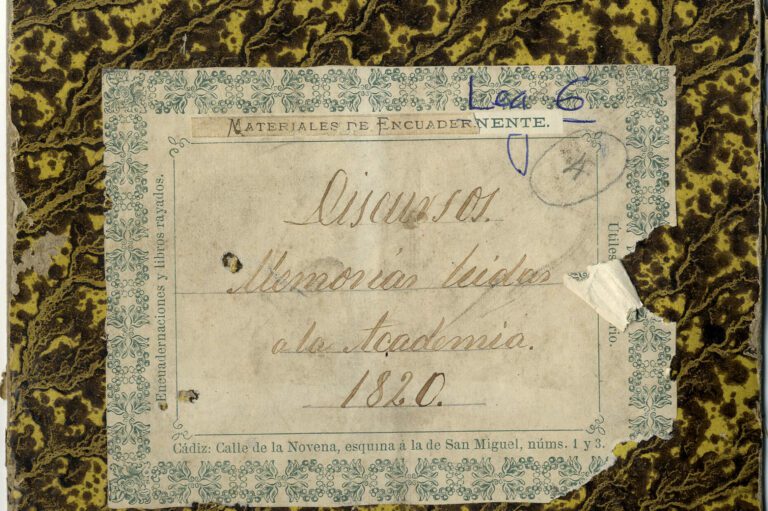 Leg 6
MATERIALES DE ENCUADERNENTE.
4
Discursos.
Memorias leidas
a la Academia.
1820.
Encuadernaciones y libros rayados.
Útiles
rio.
Cádiz: Calle de la Novena, esquina à la de San Miguel, núms. 1 y 3.